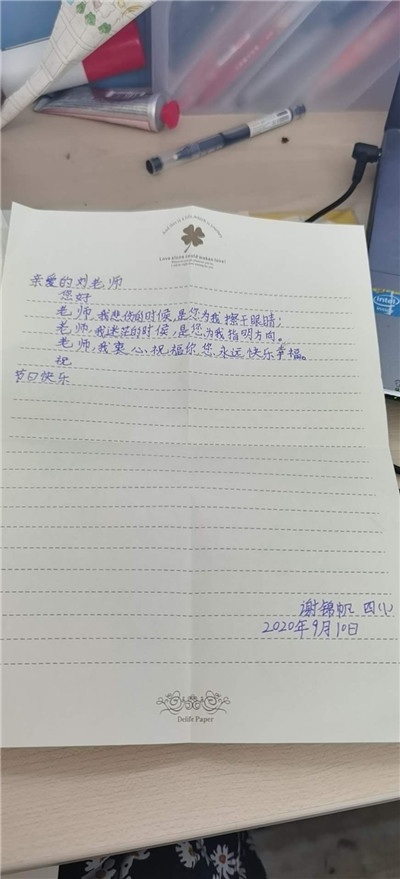 亲爱的刘老师
您好
老师,我悲伤的时候,是您为我擦干眼睛;
老师,我迷茫的时候,是您为我指明方向。
老师,我衷心祝福你您永远快乐幸福。
祝
节日快乐
谢锦帆 四(
2020年9月10日
Delife Paper
intel